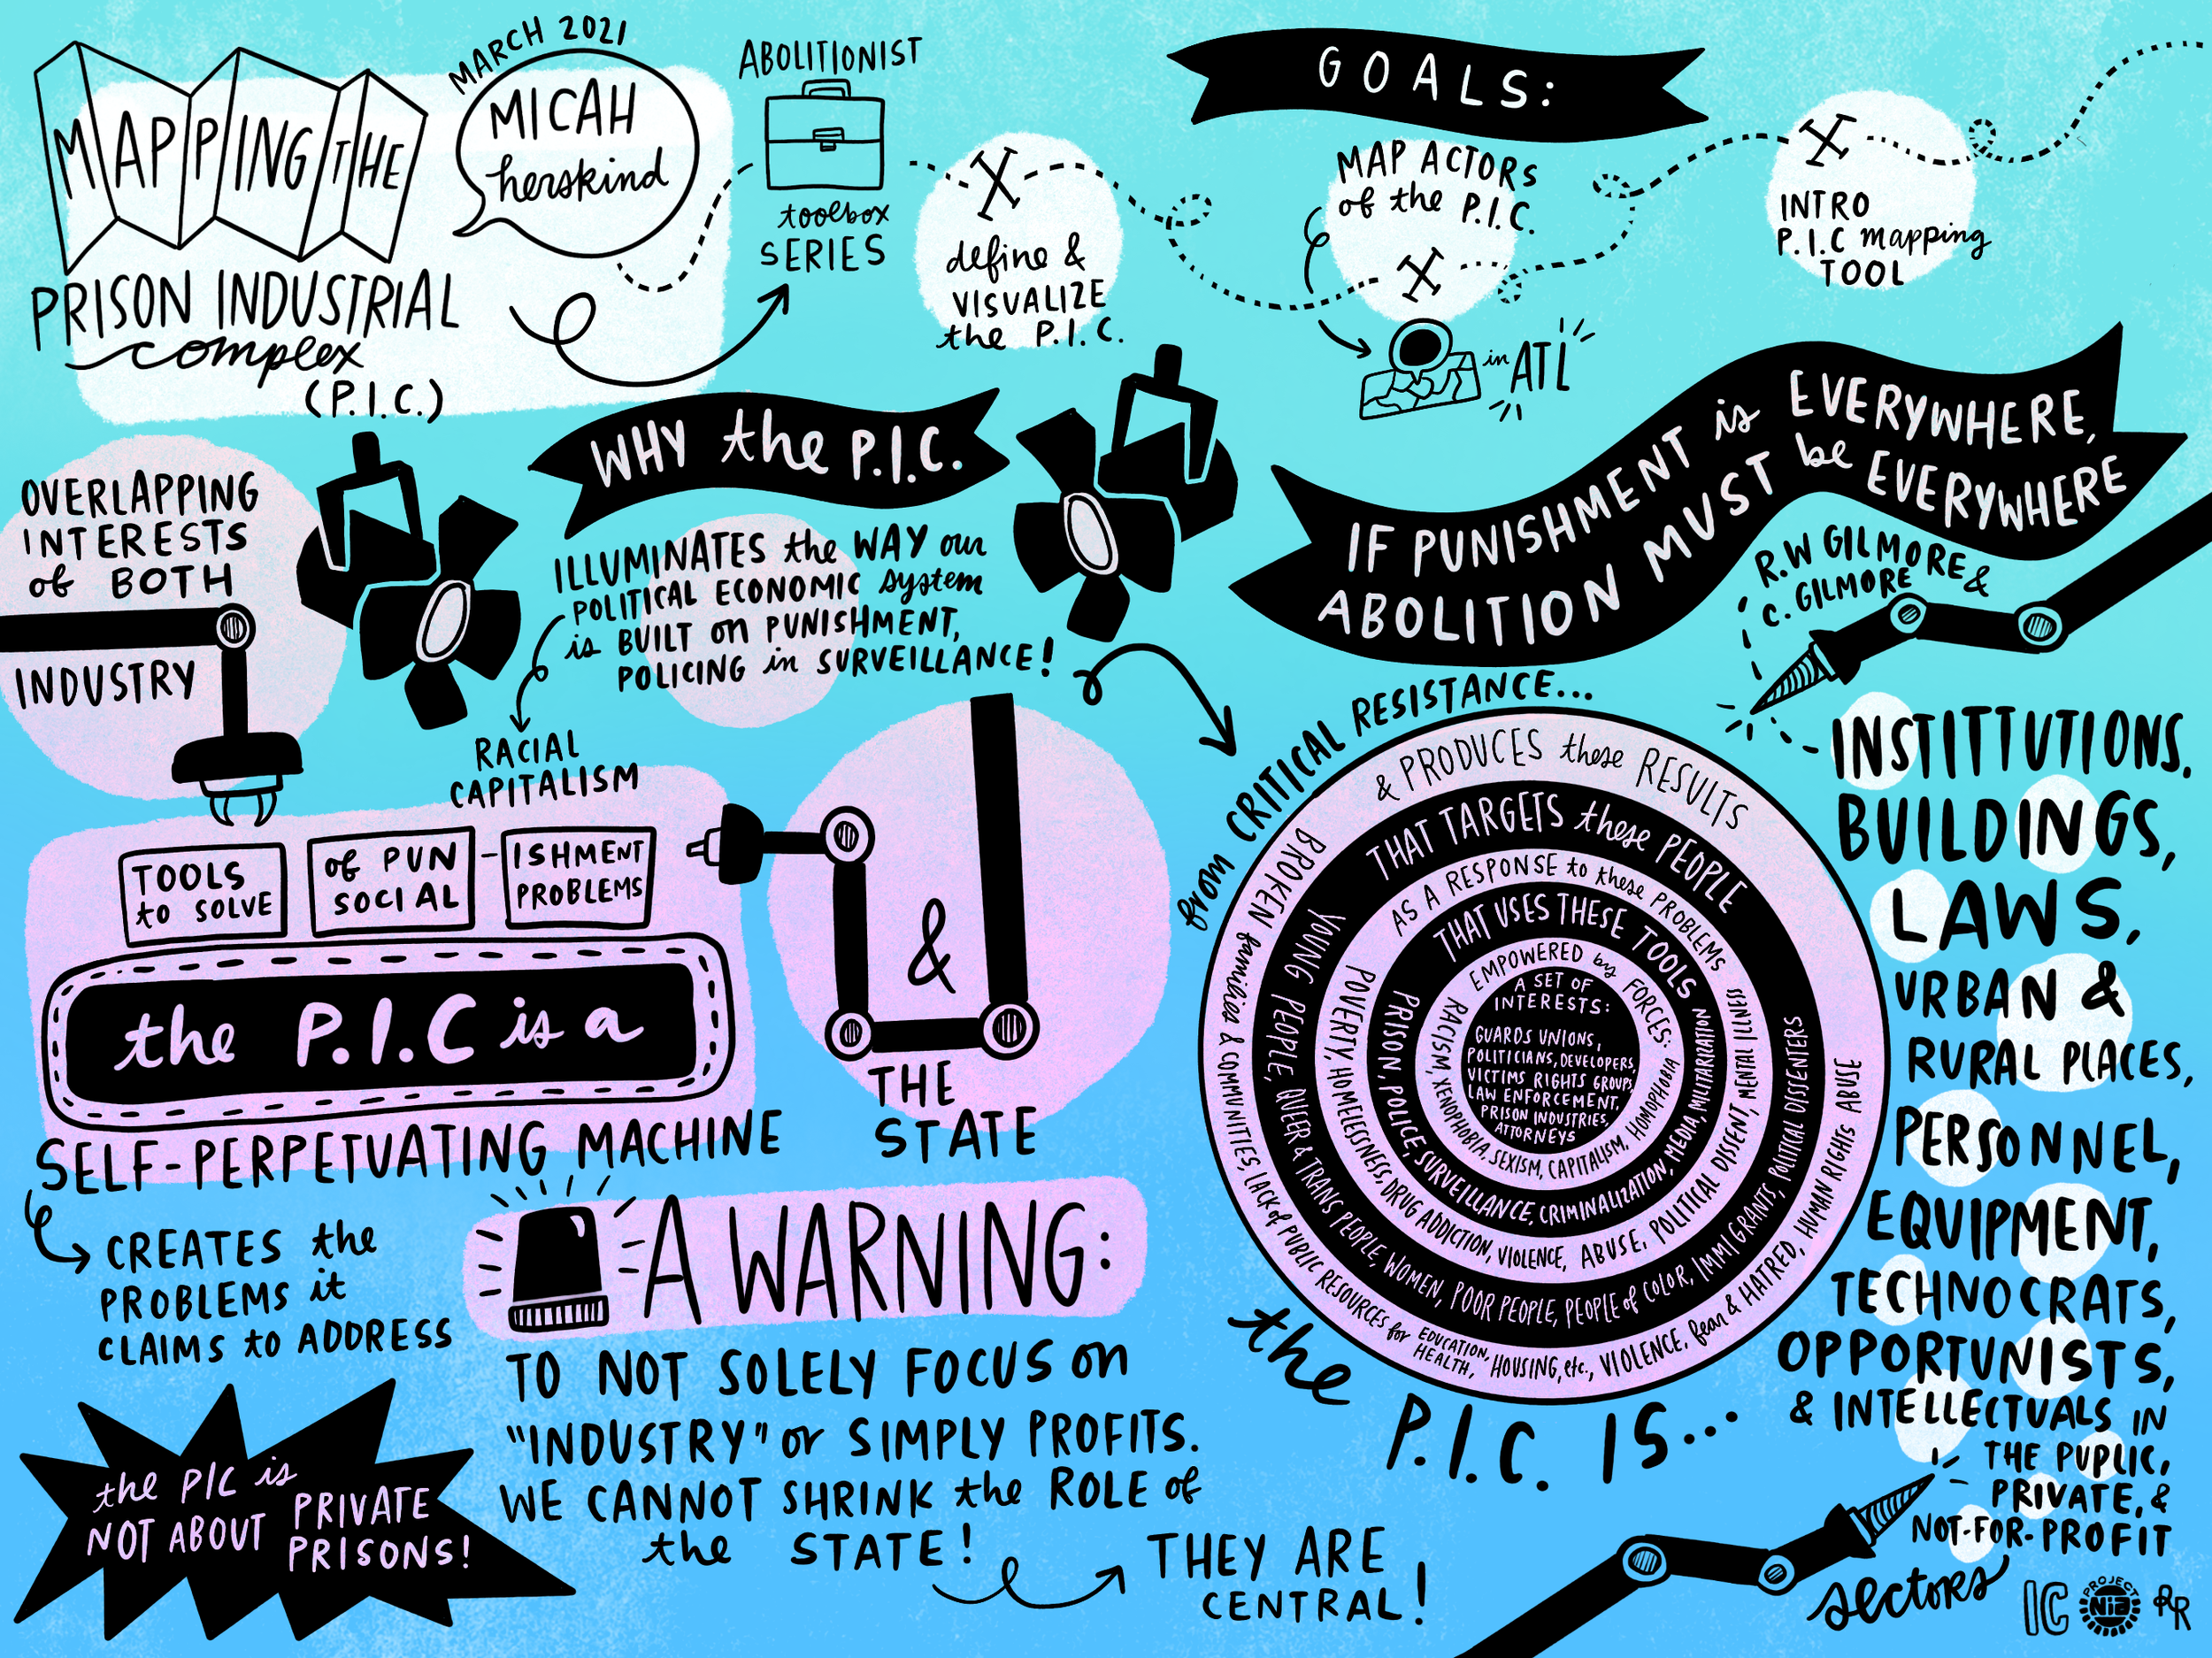 MAPPING THE
PRISON INDUSTRIAL
complex
(P.I.C.)
MARCH 2021
MICAH
herskind
ABOLITIONIST
toolbox
SERIES
GOALS:
define &
VISUALIZE
the P.I.C.
MAP ACTORS
of the P.I.C.
in ATL
INTRO
P.I.C mapping
TOOL
WHY the P.I.C.
ILLUMINATES the WAY our
POLITICAL ECONOMIC system
is BUILT on PUNISHMENT,
POLICING in SURVEILLANCE!
RACIAL
CAPITALISM
OVERLAPPING
INTERESTS
of BOTH
INDUSTRY
&
THE
STATE
TOOLS of PUN-ISHMENT
to SOLVE SOCIAL PROBLEMS
the P.I.C is a
SELF-PERPETUATING MACHINE
CREATES the
PROBLEMS it
CLAIMS to ADDRESS
the PIC is
NOT ABOUT PRIVATE
PRISONS!
A WARNING:
TO NOT SOLELY FOCUS on
"INDUSTRY" or SIMPLY PROFITS.
WE CANNOT SHRINK the ROLE of
the STATE!
THEY ARE
CENTRAL!
IF PUNISHMENT is EVERYWHERE,
ABOLITION MUST be EVERYWHERE
R.W GILMORE &
C. GILMORE
from CRITICAL RESISTANCE...
the P.I.C. IS...
A SET OF
INTERESTS:
GUARDS UNIONS,
POLITICIANS, DEVELOPERS,
VICTIMS RIGHTS GROUPS,
LAW ENFORCEMENT,
PRISON INDUSTRIES,
ATTORNEYS
EMPOWERED by FORCES:
RACISM, XENOPHOBIA, SEXISM, CAPITALISM, HOMOPHOBIA
THAT USES THESE TOOLS
PRISON, POLICE, SURVEILLANCE, CRIMINALIZATION, MEDIA, MILITARIZATION
AS A RESPONSE to these PROBLEMS
POVERTY, HOMELESSNESS, DRUG ADDICTION, VIOLENCE, ABUSE, POLITICAL DISSENT, MENTAL ILLNESS
THAT TARGETS these PEOPLE
YOUNG PEOPLE, QUEER & TRANS PEOPLE, WOMEN, POOR PEOPLE, PEOPLE of COLOR, IMMIGRANTS, POLITICAL DISSENTERS
& PRODUCES these RESULTS
BROKEN families & COMMUNITIES, LACK of PUBLIC RESOURCES for EDUCATION, HEALTH, HOUSING, etc., VIOLENCE, fear & HATRED, HUMAN RIGHTS ABUSE
INSTITTUTIONS.
BUILDINGS,
LAWS,
URBAN &
RURAL PLACES,
PERSONNEL,
EQUIPMENT,
TECHNOCRATS,
OPPORTUNISTS,
& INTELLECTUALS IN
THE PUPLIC,
PRIVATE, &
NOT-FOR-PROFIT
sectors
IC
PROJECT
NIA
RR